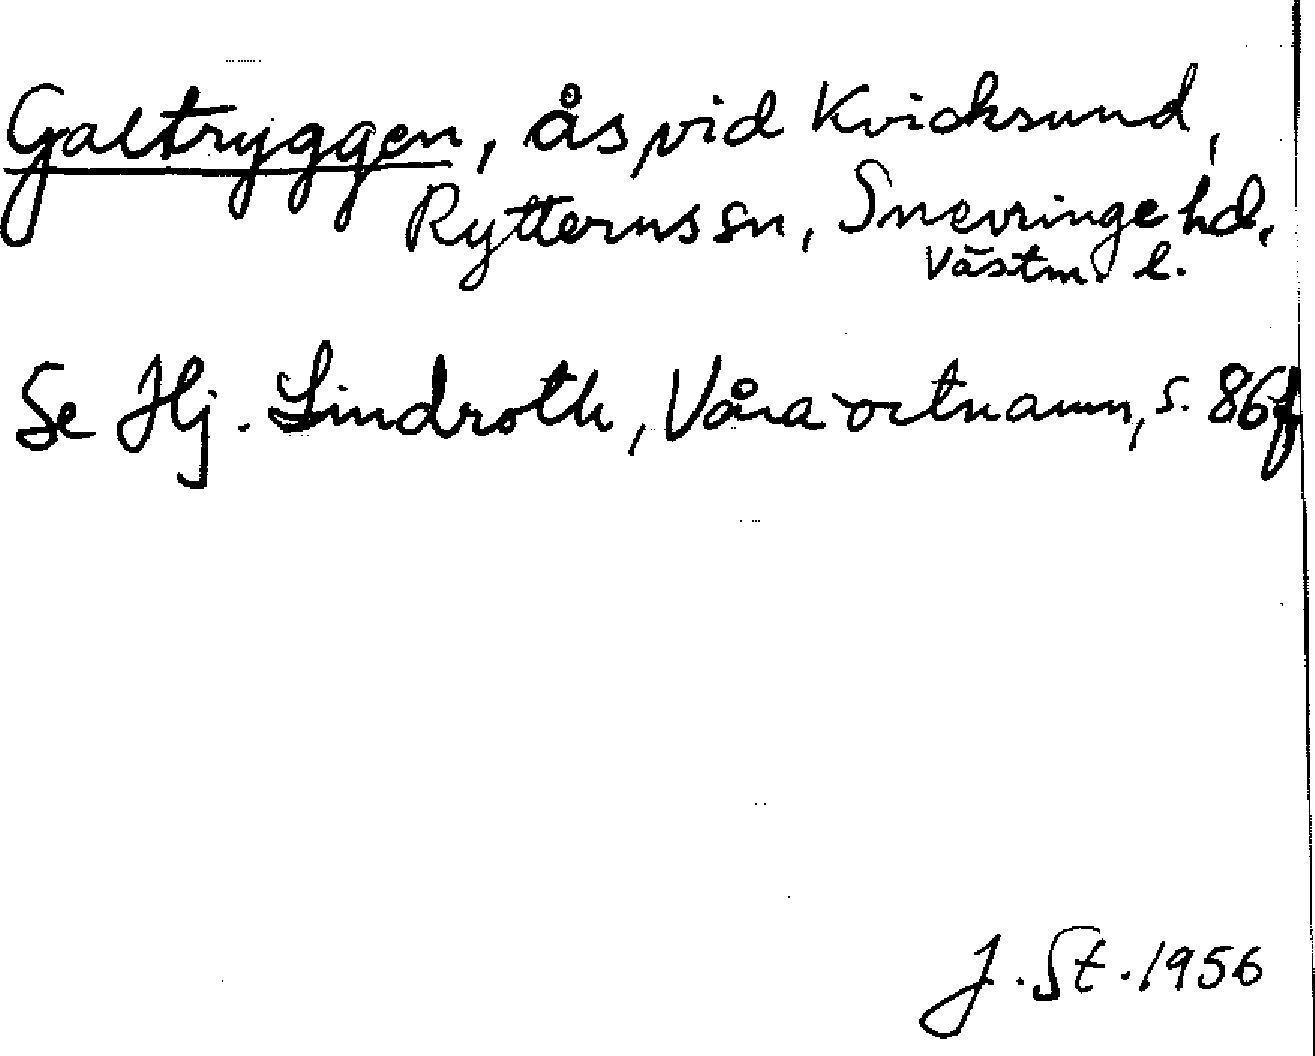 Galtryggen, ås vid Kvicksund,
Rytterns sn, Snevringe hd,
Västm. l.
Se Hj. Lindroth, Våra ortnamn, s. 86f
J. St. 1956